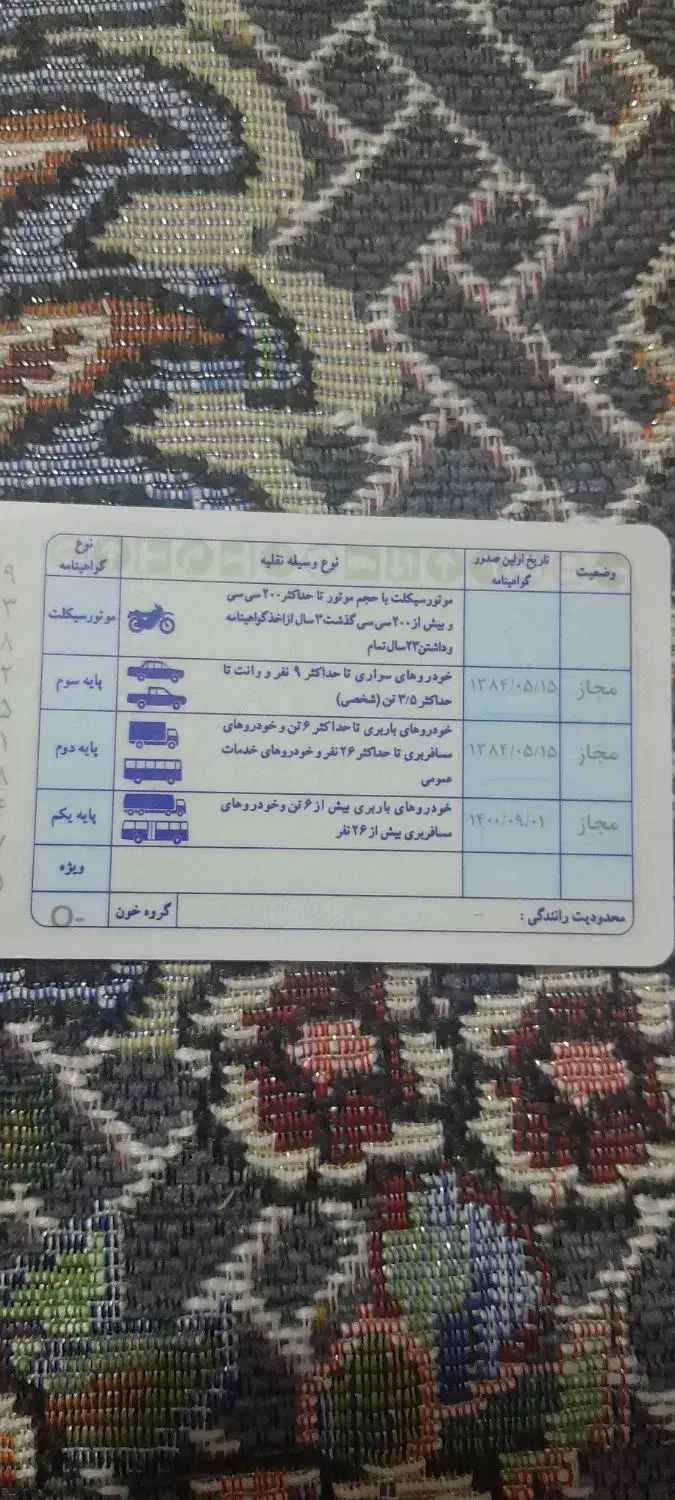 نوع گواهینامه
نوع وسیله نقلیه
تاریخ اولین صدور گواهینامه
وضعیت
موتورسیکلت
موتورسیکلت با حجم موتور تا حداکثر ۲۰۰ سی سی
و بیش از ۲۰۰ سی سی گذشت ۳ سال از اخذ گواهینامه
و داشتن ۲۳ سال تمام
پایه سوم
خودروهای سواری تا حداکثر ۹ نفر و وانت تا
حداکثر ۳/۵ تن (شخصی)
۱۳۸۴/۰۵/۱۵
مجاز
پایه دوم
خودروهای باربری تا حداکثر ۶ تن و خودروهای
مسافربری تا حداکثر ۲۶ نفر و خودروهای خدمات
عمومی
۱۳۸۴/۰۵/۱۵
مجاز
پایه یکم
خودروهای باربری بیش از ۶ تن وخودروهای
مسافربری بیش از ۲۶ نفر
۱۴۰۰/۰۹/۰۱
مجاز
ویژه
محدودیت رانندگی : -
گروه خون
O-